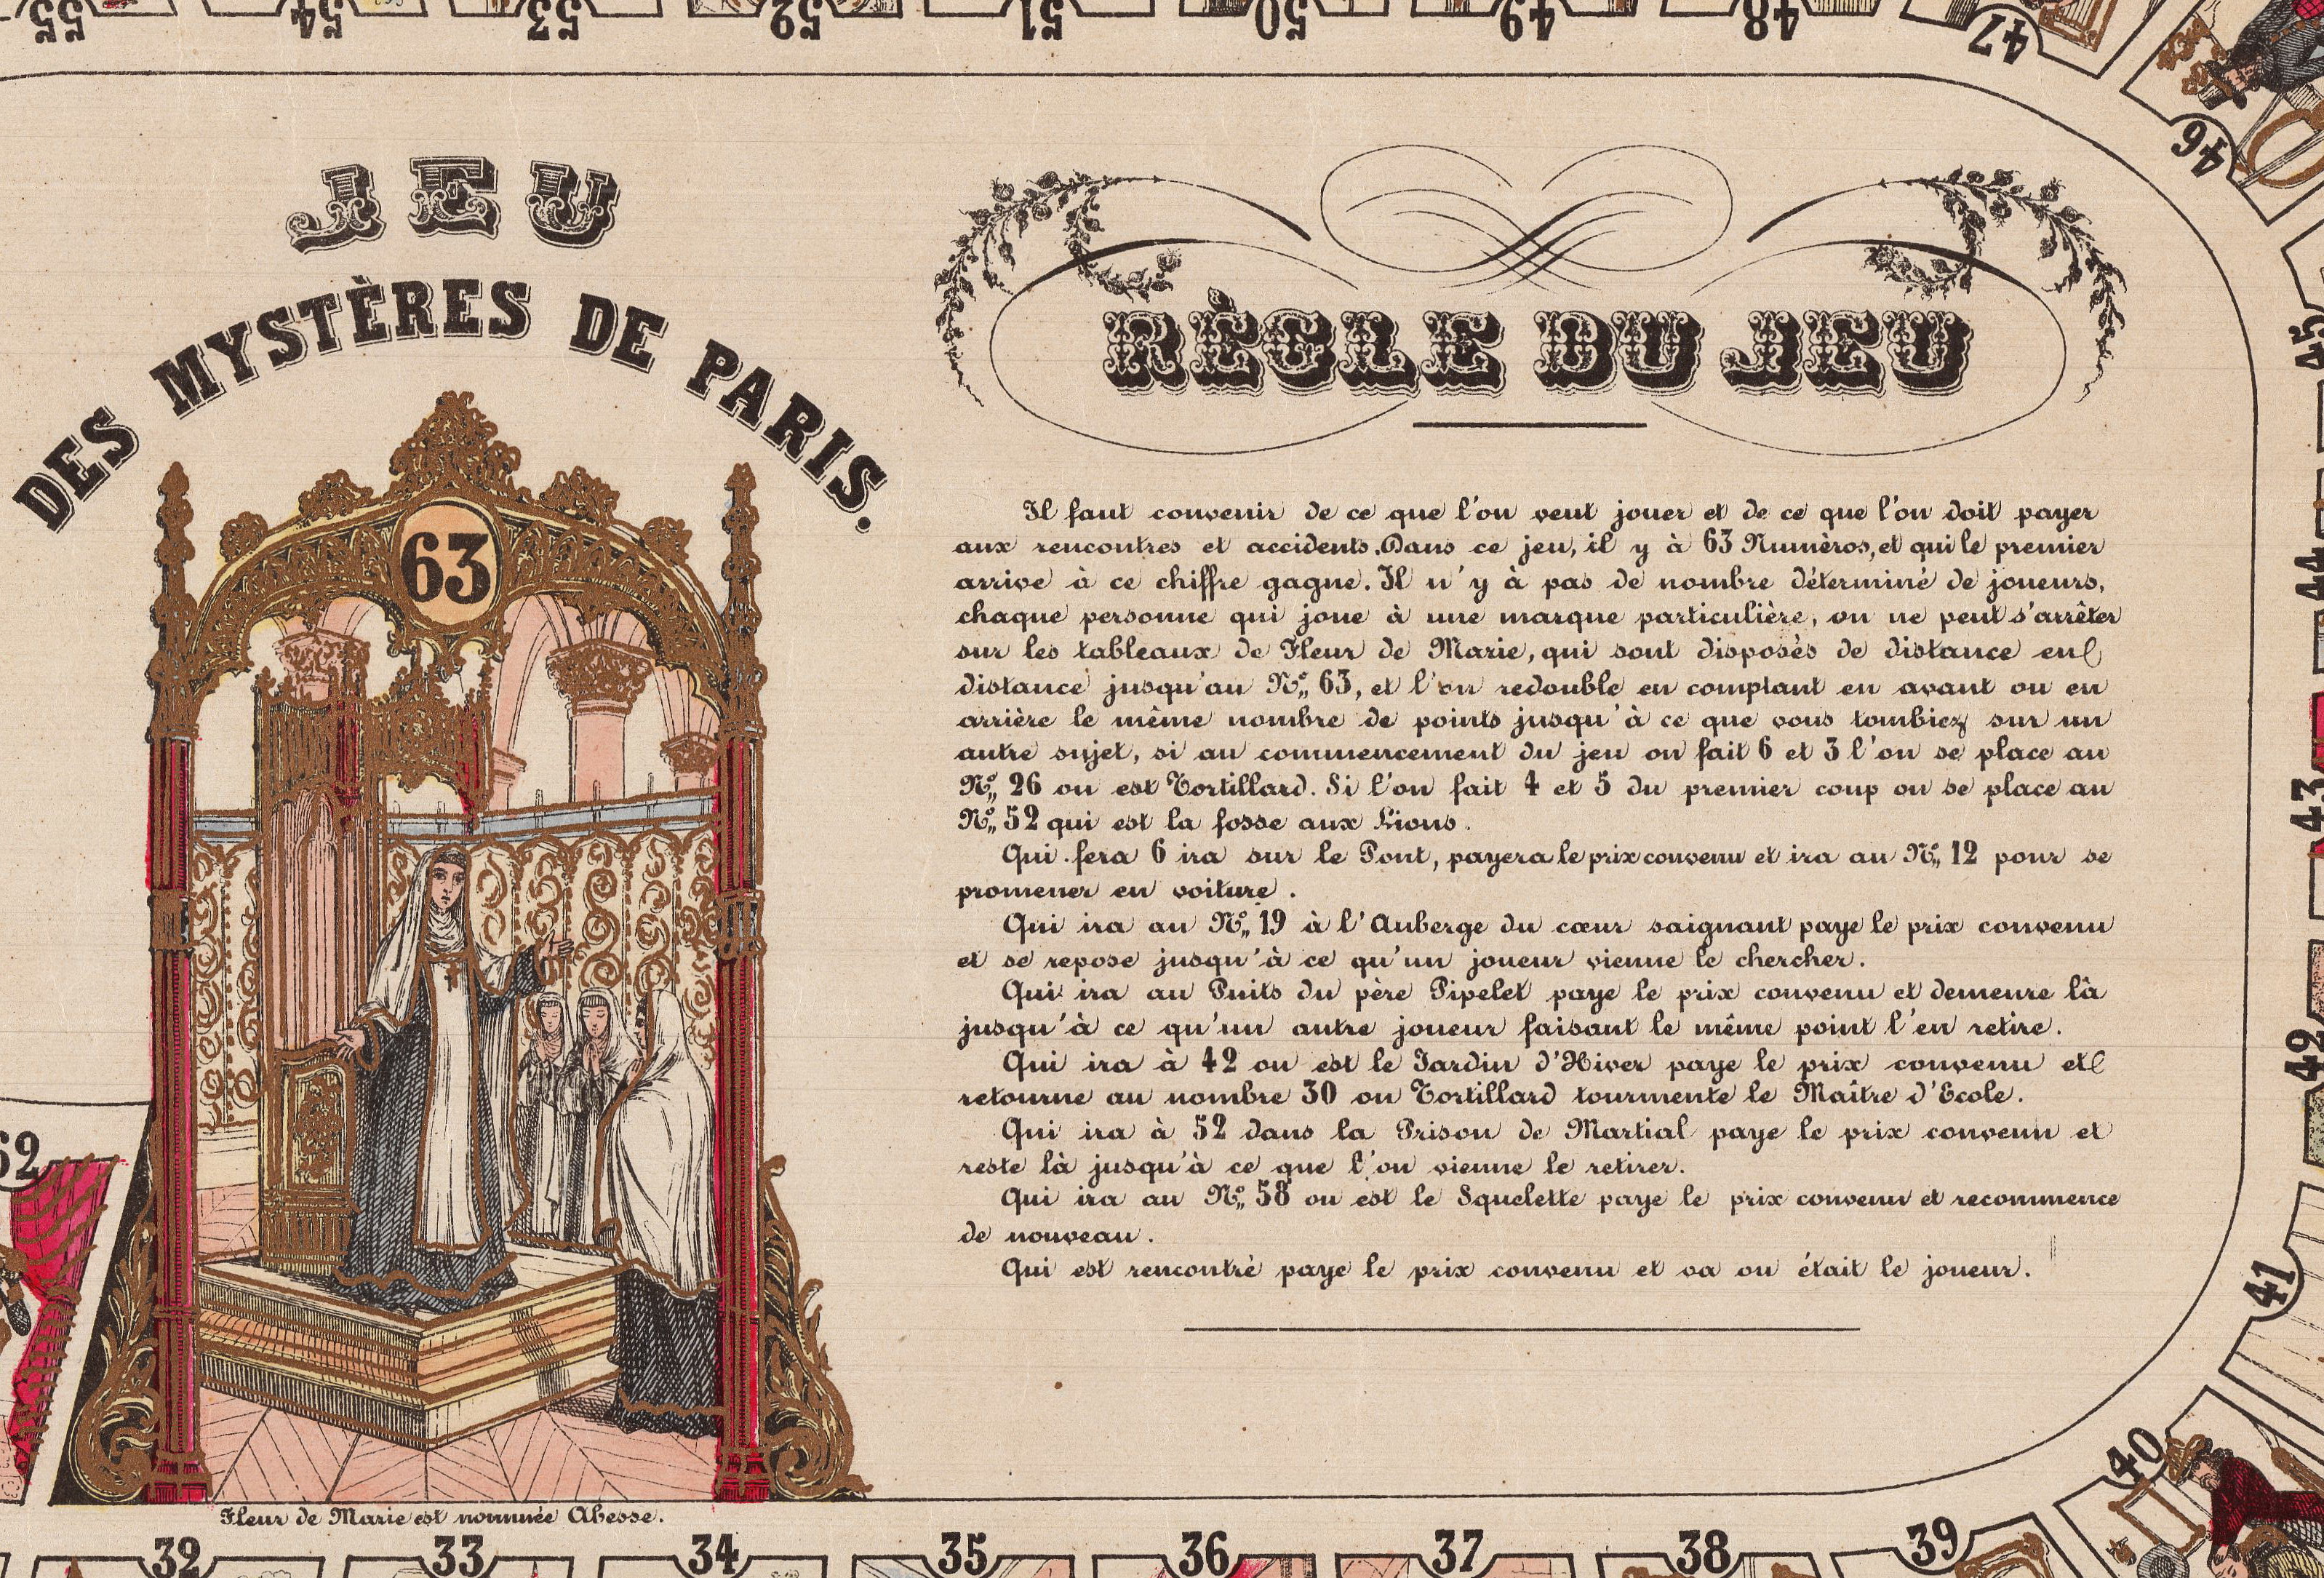 55 54 53 52 51 50 49 48 47
46
45
44
43
42
41
40
JEU
DES MYSTÈRES DE PARIS.
63
62
Fleur de Marie est nommée Abesse.
32 33 34 35 36 37 38 39
RÈGLE DU JEU
Il faut convenir de ce que l'on veut jouer et de ce que l'on doit payer
aux rencontres et accidents. Dans ce jeu, il y à 63 Numèros, et qui le premier
arrive à ce chiffre gagne. Il n'y à pas de nombre déterminé de joueurs,
chaque personne qui joue à une marque particulière, on ne peut s'arrêter
sur les tableaux de Fleur de Marie, qui sont disposès de distance en
distance jusqu'au Nº 63, et l'on redouble en comptant en avant ou en
arrière le même nombre de points jusqu'à ce que vous tombiez sur un
autre sujet, si au commencement du jeu on fait 6 et 3 l'on se place au
Nº 26 ou est Tortillard. Si l'on fait 4 et 5 du premier coup on se place au
Nº 52 qui est la fosse aux Lions.
Qui fera 6 ira sur le Pont, payera le prix convenu et ira au Nº 12 pour se
promener en voiture.
Qui ira au Nº 19 à l'Auberge du cœur saignant paye le prix convenu
et se repose jusqu'à ce qu'un joueur vienne le chercher.
Qui ira au Puits du père Pipelet paye le prix convenu et demeure là
jusqu'à ce qu'un autre joueur faisant le même point l'en retire.
Qui ira à 42 ou est le Jardin d'Hiver paye le prix convenu et
retourne au nombre 30 ou Tortillard tourmente le Maître d'Ecole.
Qui ira à 52 dans la Prison de Martial paye le prix convenu et
reste là jusqu'à ce que l'on vienne le retirer.
Qui ira au Nº 58 ou est le Squelette paye le prix convenu et recommence
de nouveau.
Qui est rencontré paye le prix convenu et va ou était le joueur.